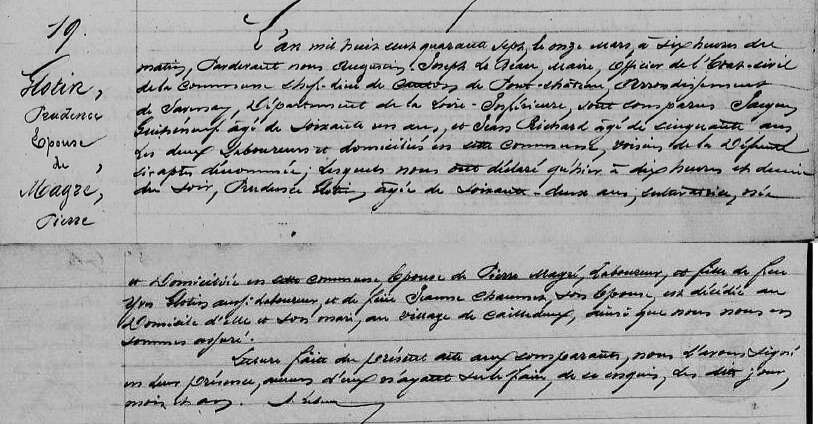 19.
Flotin,
Prudence
Epouse
de
Magré,
Pierre
L'an mil huit cent quarante sept, le onze mars, à six heures du
matin, Pardevant nous Augustin Joseph Le Maire, Officier de l'Etat-civil
de la Commune Chef-lieu de Canton de Pont-château, Arrondissement
de Savenay, Département de la Loire-Inférieure, sont comparus Jacques
âgé de soixante un ans, et Jean Richard âgé de cinquante ans
Les deux Laboureurs et domiciliés en cette commune, voisins de la Défunte
ci après dénommée; lesquels nous ont déclaré qu'hier à dix heures et demie
du soir, Prudence Flotin, âgée de soixante-deux ans, née
et Domiciliée en cette commune Epouse de Pierre Magré, Laboureur, et fille de feu
Yves Flotin aussi laboureur, et de feue Jeanne son Epouse, est décédée au
Domicile d'elle et son mari, au village de ainsi que nous nous en
sommes assuré.
Lecture faite du présent acte aux comparants, nous l'avons signé
en leur présence, aucun d'eux n'ayant su le faire, de ce enquis, les dits jour,
mois et an.